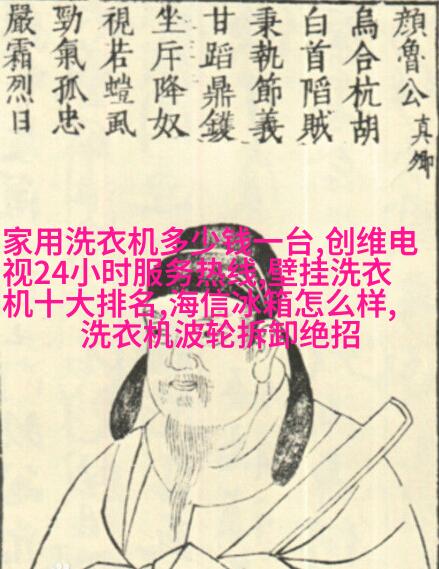 顔魯公真卿
烏合杭胡
白首陷賊
秉執節義
甘蹈鼎鑊
坐斥降奴
視若螘虱
勁氣孤忠
嚴霜烈日
家用洗衣机多少钱一台,创维电
视24小时服务热线,壁挂洗衣
机十大排名,海信冰箱怎么样,
洗衣机波轮拆卸绝招